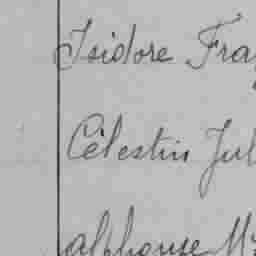 Isidore Fra
Célestin Jul
alphonse